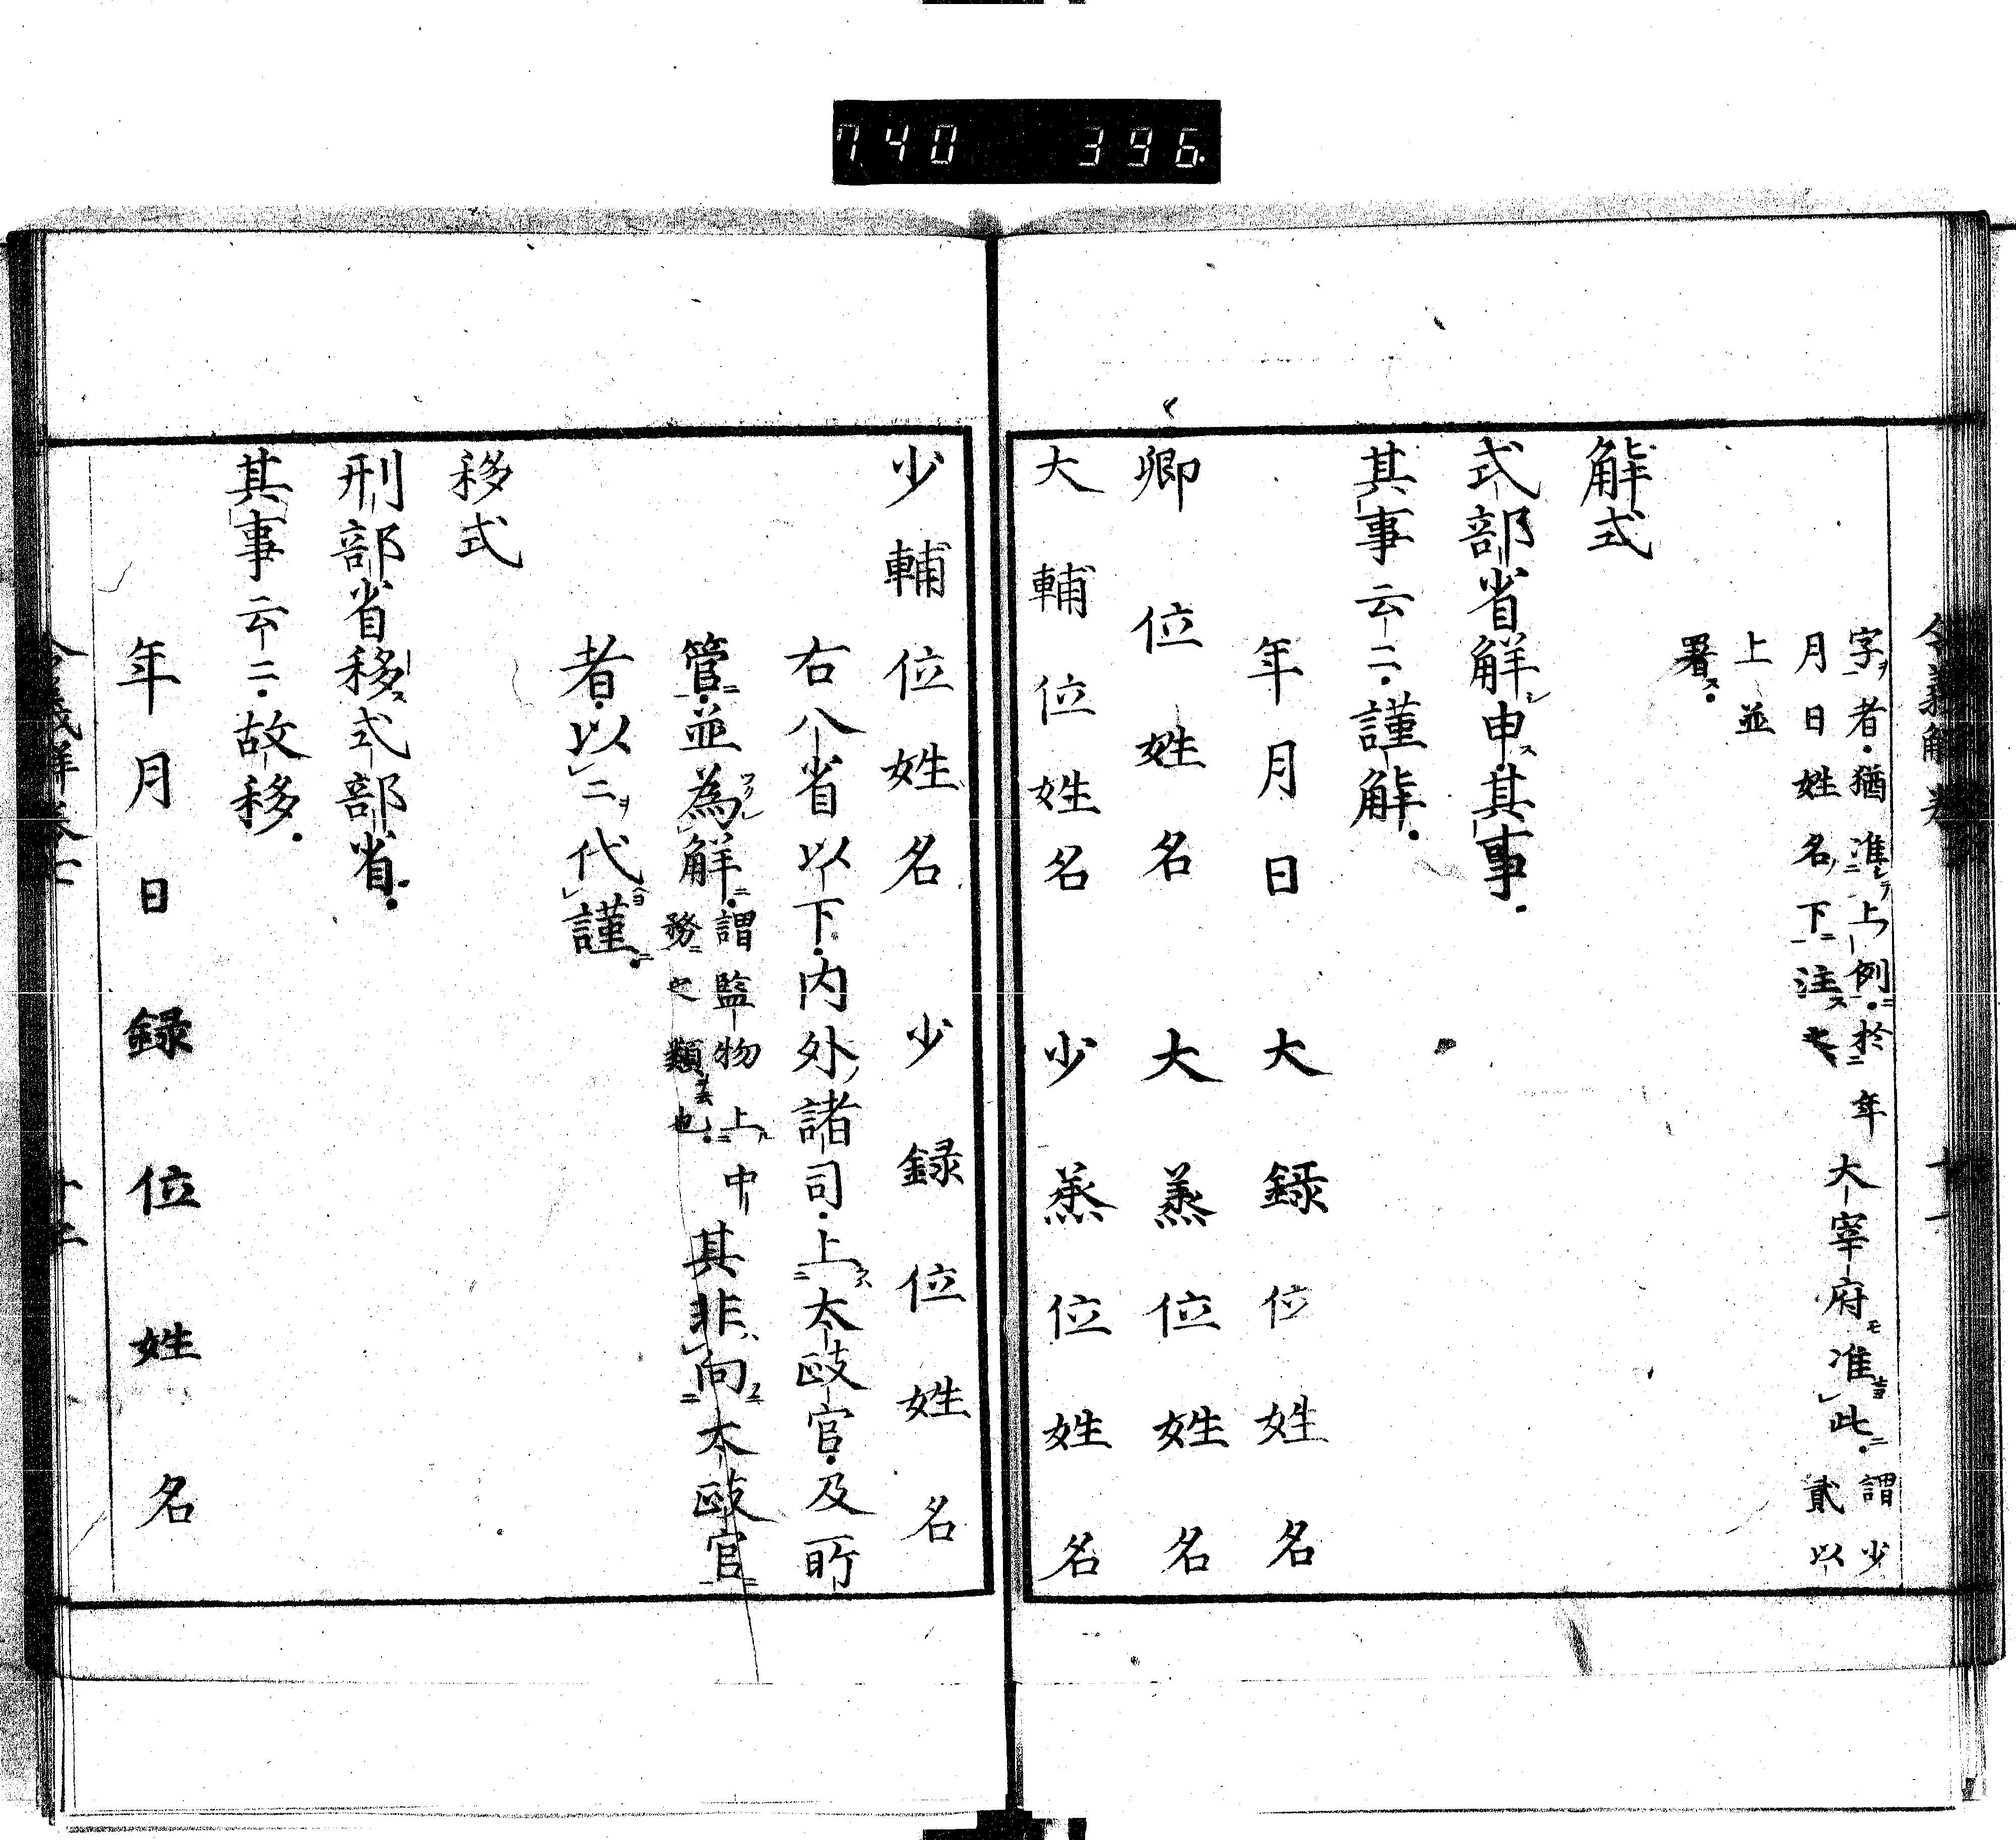 740 396
字者猶准上例於年
月日姓名下注之
大宰府准此
謂少
貳以
上並
署
解式
式部省解申其事
其事云云謹解
年月日 大録位姓名
卿位姓名 大丞位姓名
大輔位姓名 少丞位姓名
少輔位姓名 少録位姓名
右八省以下内外諸司上太政官及所
管並為解
謂監物上中
務之類也
其非向太政官
者以二代謹
移式
刑部省移式部省
其事云云故移
年月日 録位姓名